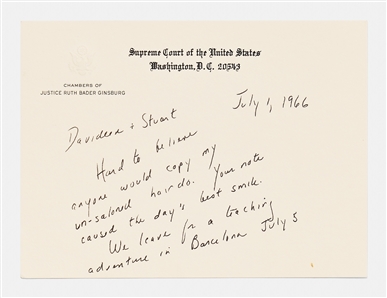 Supreme Court of the United States
Washington, D. C. 20543
CHAMBERS OF
JUSTICE RUTH BADER GINSBURG
July 1, 1966
Davidson & Stuart
Hard to believe
anyone would copy my
un-saloned hairdo. Your note
caused the day's best smile.
We leave for a teaching
adventure in Barcelona July 5